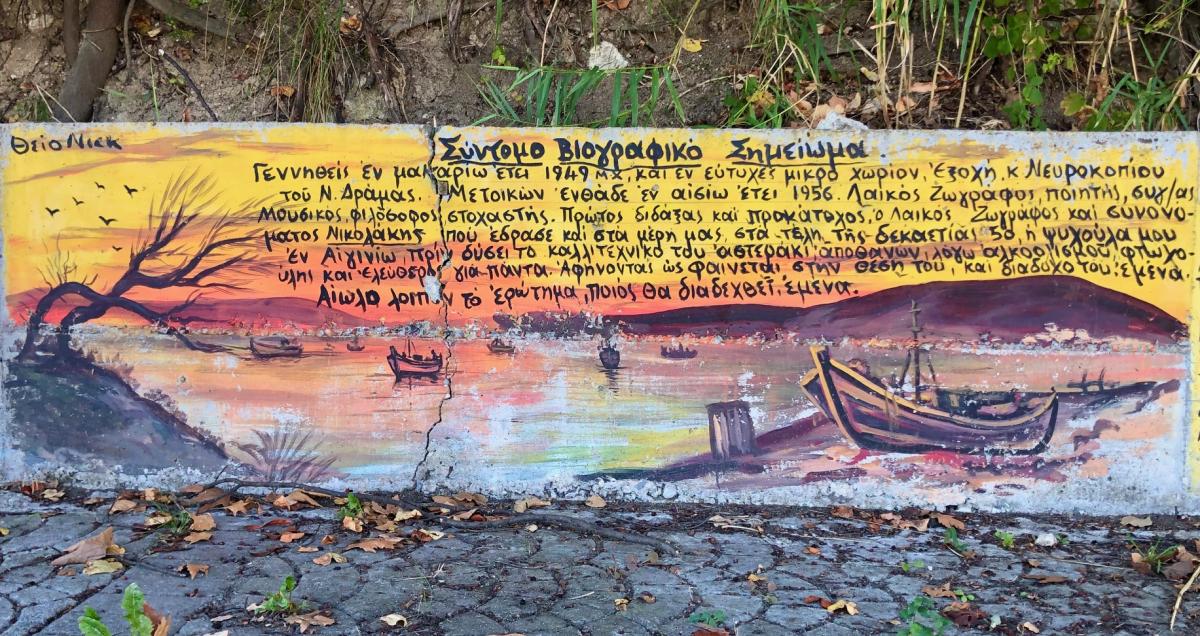 Θείο Nick
Σύντομο Βιογραφικό Σημείωμα
Γεννηθείς ἐν μακαρίω ἔτει 1949 μχ, καί ἐν εὐτυχές μικρό χωρίον, Ἐξοχή, κ. Νευροκοπίου
τοῦ Ν. Δράμας. Μετοικών ἐνθάδε ἐν αἰσίω ἔτει 1956. Λαϊκός Ζωγράφος, ποιητής, συχ/ας
Μουσικός, φιλόσοφος, στοχαστής. Πρῶτος διδάξας και προκάτοχος, ὁ Λαικός Ζωγράφος καί συνονο-
ματος Νικολάκης πού ἔδρασε και στά μέρη μας, στά τέλη τῆς δεκαετίας 50 ἡ ψυχούλα μου
ἐν Αἰγινίω, πρίν δύσει το καλλιτεχνικό του ἀστεράκι, ἀποθανών, λόγω ἀλκοολισμοῦ, φτωχο-
ύλης καί ἐλεύθερος γιά πάντα. Αφήνοντας ὡς φαίνεται, στην θέση τοῦ, και διάδοχο του, ἐμένα.
Αἰωλο λοιπόν τό ἐρώτημα, ποιός θα διαδεχθεῖ, ἐμένα.